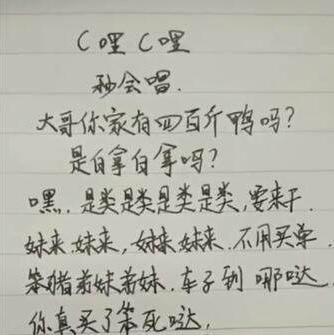 C哩C哩
秒会唱.
大哥你家有四百斤鸭吗?
是白拿白拿吗?
嘿.是类是类是类是类,要来干.
妹来妹来,妹来妹来.不用买单.
笨猪着妹着妹.车子到哪哒.
你真买了笨死哒.